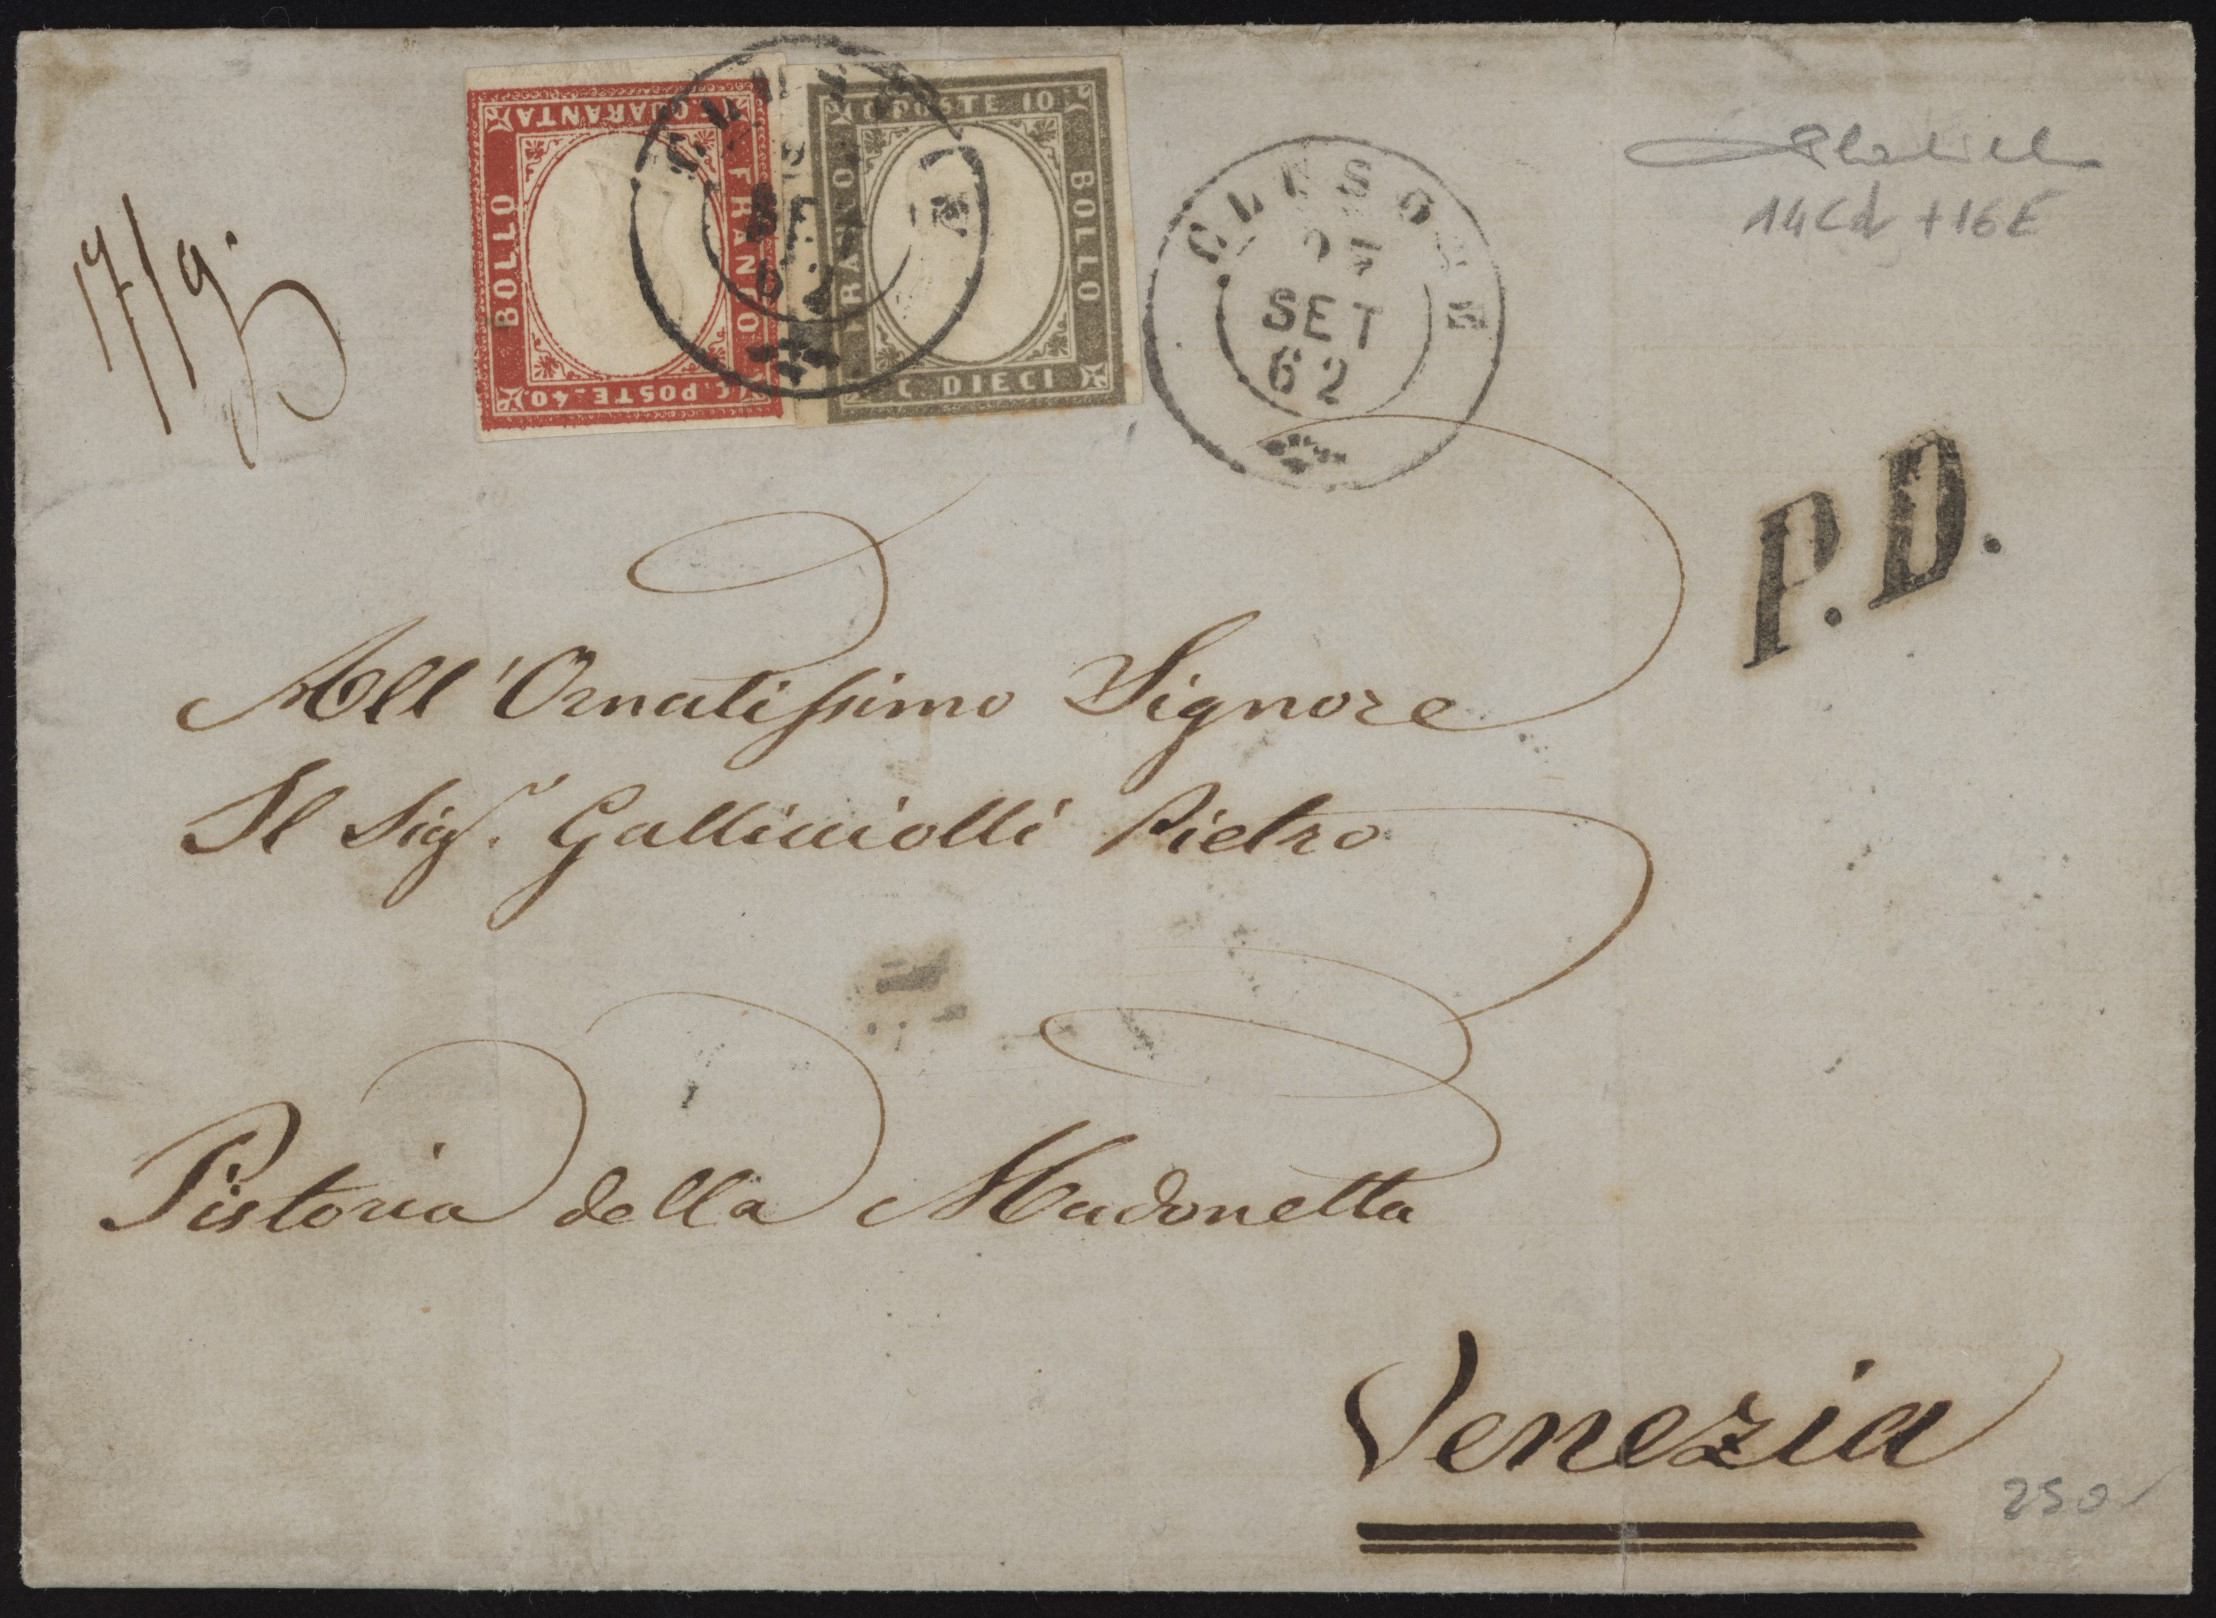 17/9.
C. QUARANTA
BOLLO
FRANCO
C. POSTE. 40
C. POSTE 10
FRANCO
BOLLO
C. DIECI
CLUSONE
SET
62
14Cd + 16E
P.D.
All' Ornatissimo Signore
Il Sigr. Gallicciolli Pietro
Pistoria della Madonetta
Venezia
250